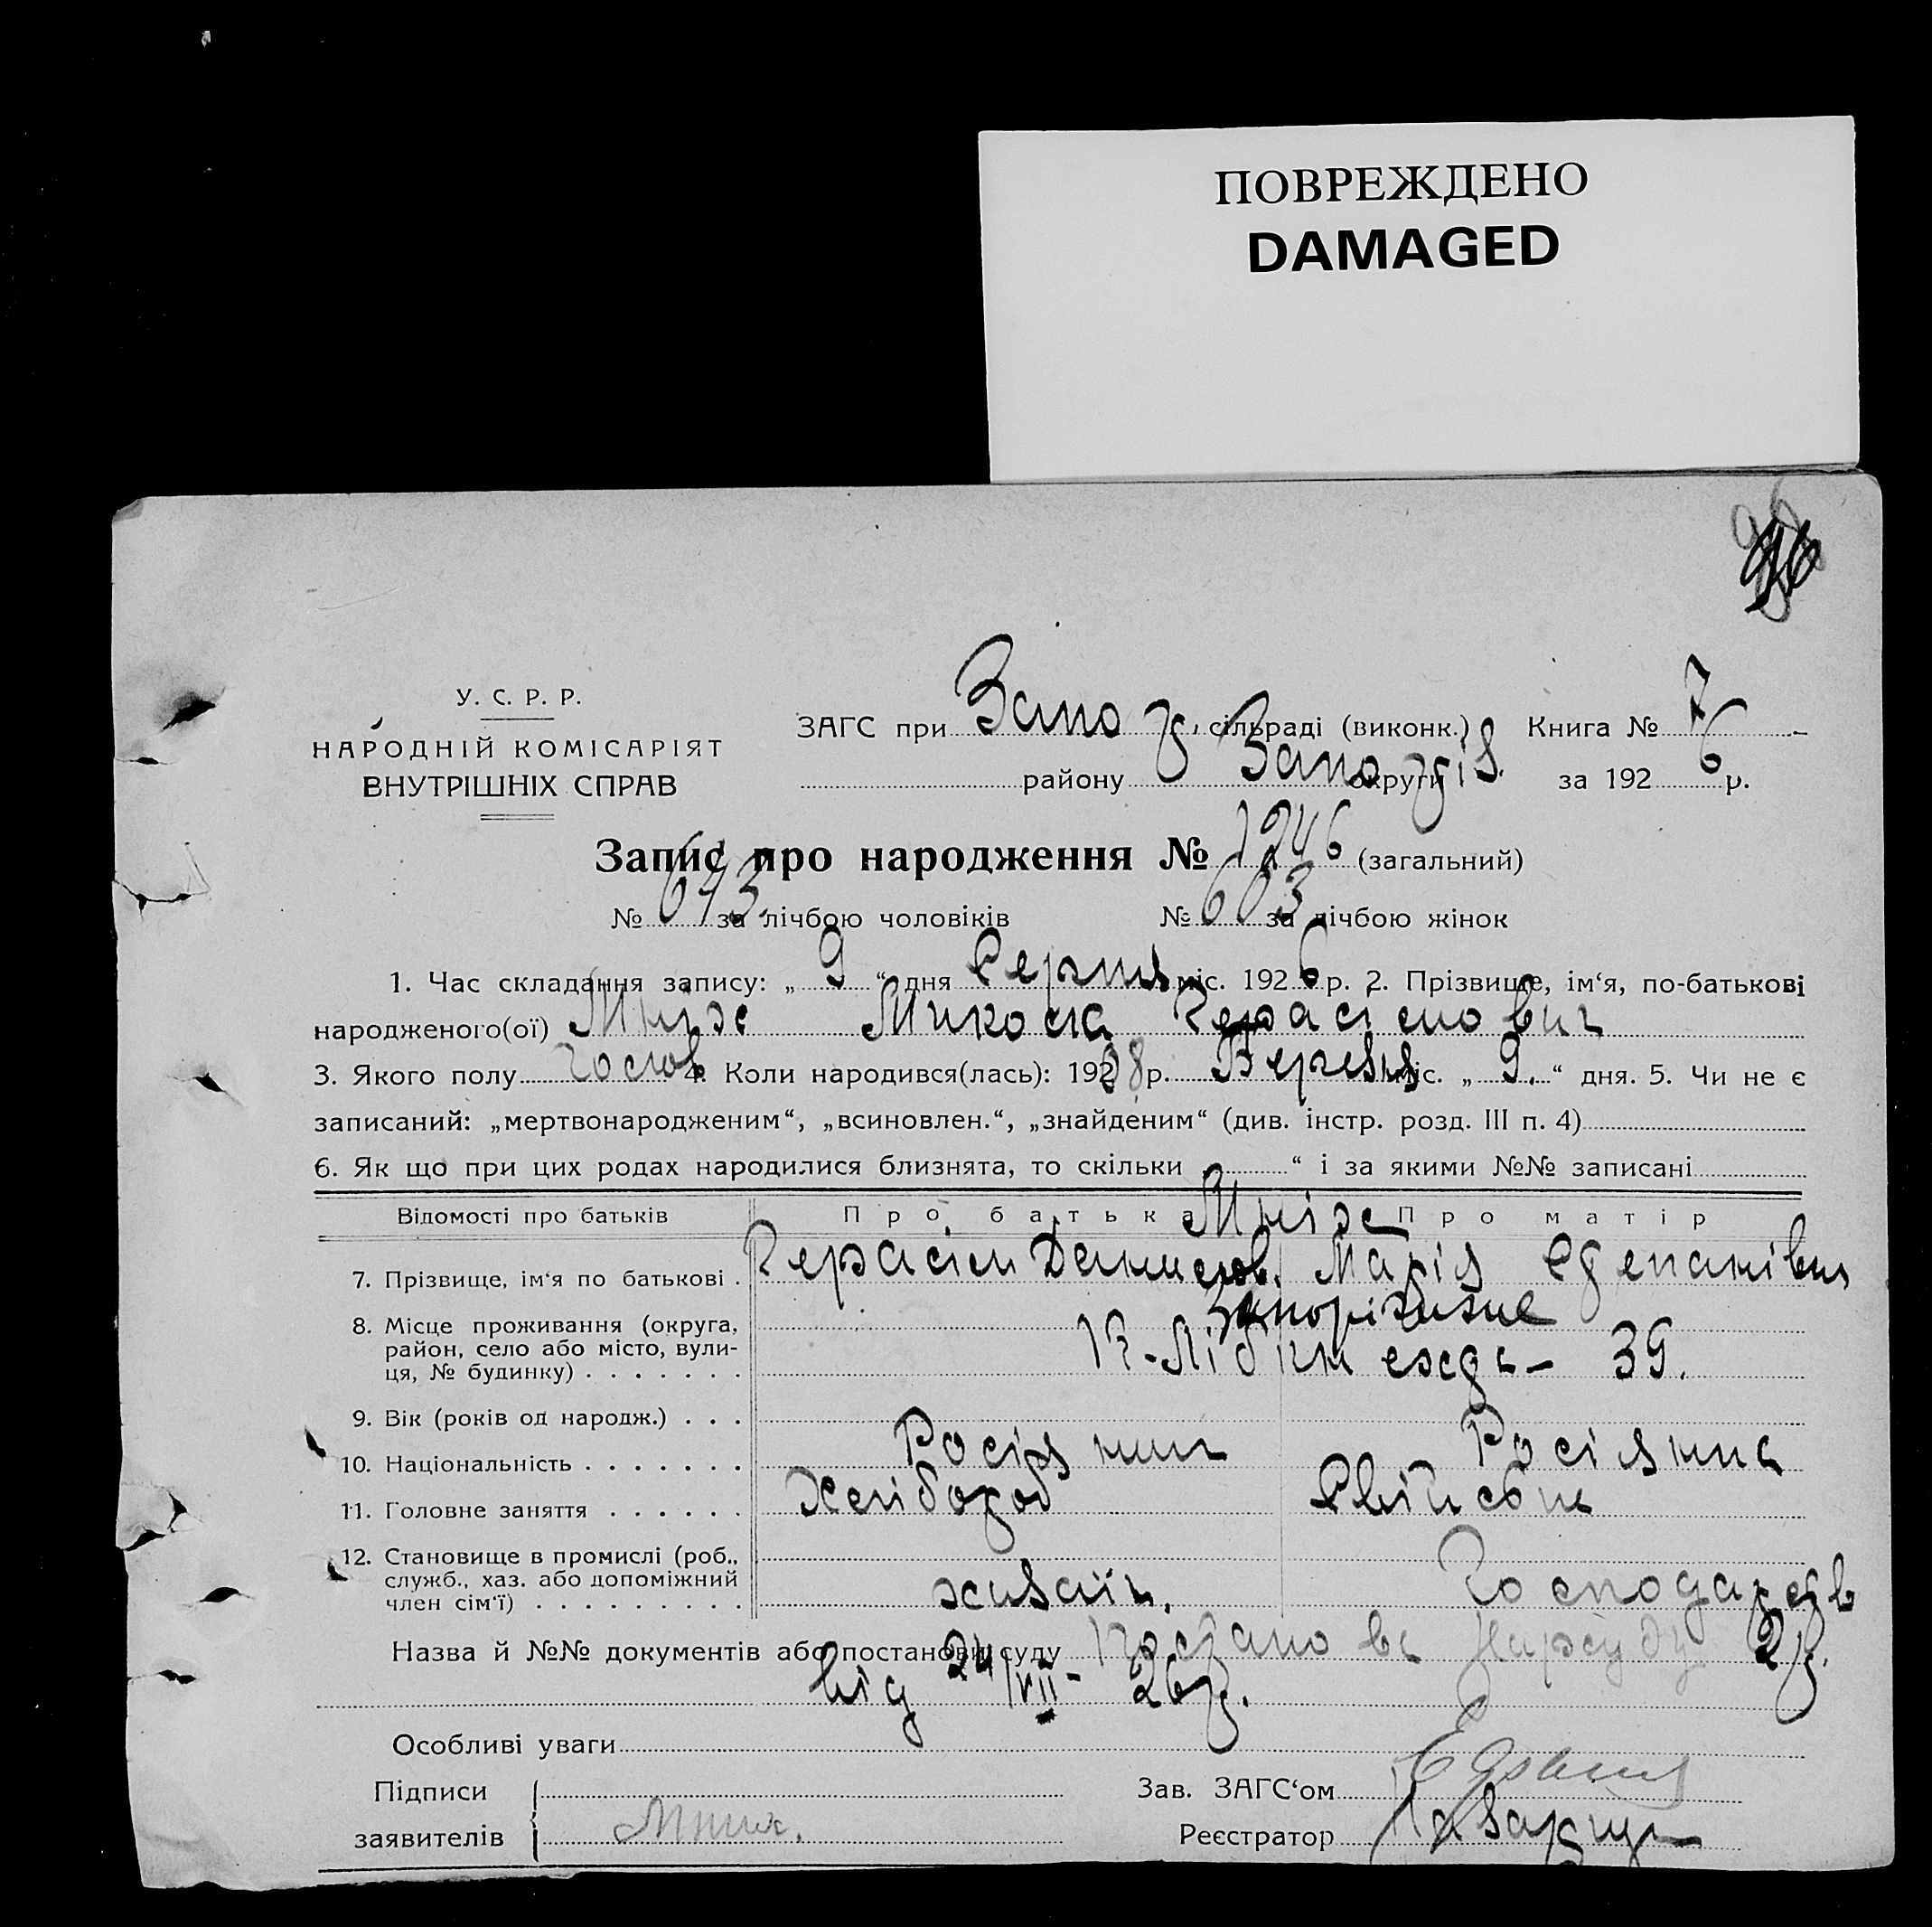 ПОВРЕЖДЕНО
DAMAGED
96
У. С. Р. Р.
НАРОДНІЙ КОМІСАРІЯТ
ВНУТРІШНІХ СПРАВ
ЗАГС при Запо сільраді (виконк.) Книга № 7
району округи за 1926 р.
Запис про народження № 1246 (загальний)
№ 643 за лічбою чоловіків № 603 за лічбою жінок
1. Час складання запису: „9“ дня Серпня міс. 1926 р. 2. Прізвище, ім‘я, по-батькові
народженого(ої) Мніх Микола Герасімович
3. Якого полу чолов 4. Коли народився(лась): 192 р. міс. „9.“ дня. 5. Чи не є
записаний: „мертвонародженим“, „всиновлен.“, „знайденим“ (див. інстр. розд. III п. 4)
6. Як що при цих родах народилися близнята, то скільки „ “ і за якими №№ записані
Відомості про батьків Про батька Про матір
Мніх
7. Прізвище, ім‘я по батькові . Герасім Данилов. Марія Степанівна
Запоріжжє
8. Місце проживання (округа, район, село або місто, вули-
ця, № будинку) . . . . . . . К.-Лібкнехта – 39.
9. Вік (років од народж.) . . .
10. Національність . . . . . . . Росіянин Росіянка
11. Головне заняття . . . . . . Хлібороб Свійське
12. Становище в промислі (роб.,
служб., хаз. або допоміжний
член сім‘ї) . . . . . . . . . хазяїн. Господарств
Назва й №№ документів або постанови суду Постанова Нарсуду 2
від 24/VII- 26р.
Особливі уваги
Підписи Зав. ЗАГС‘ом
заявителів Мних. Реєстратор